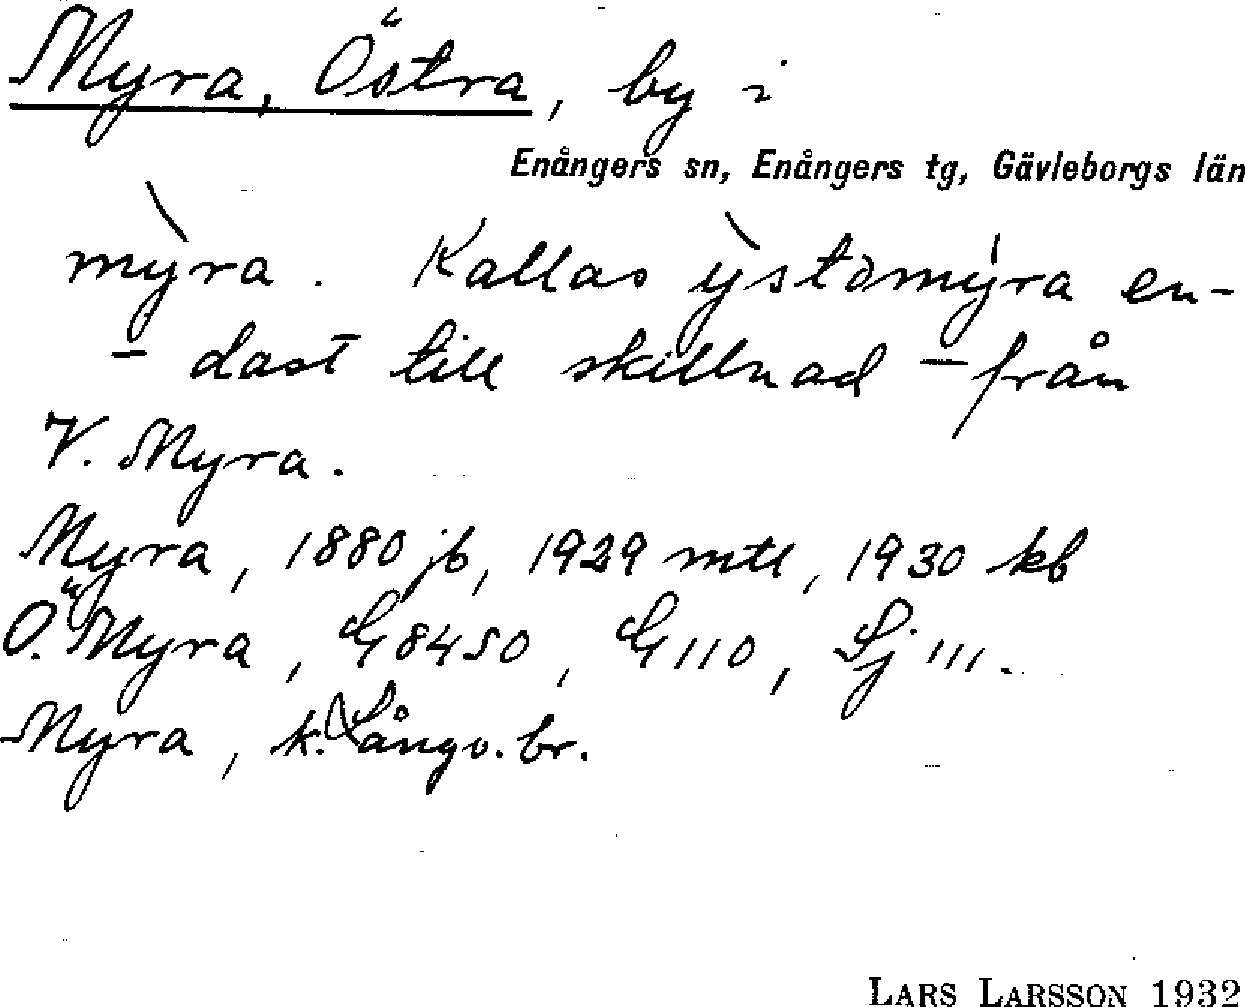 Myra, Östra, by i
Enångers sn, Enångers tg, Gävleborgs län
mỳra. Kallas ỳstamýra en-
- dast till skillnad - från
V. Myra.
Myra, 1880 jb, 1929 mtl, 1930 kb
Ö. Myra, G8450, G110, Sj 111.
Myra, k. Långv. br.
LARS LARSSON 1932